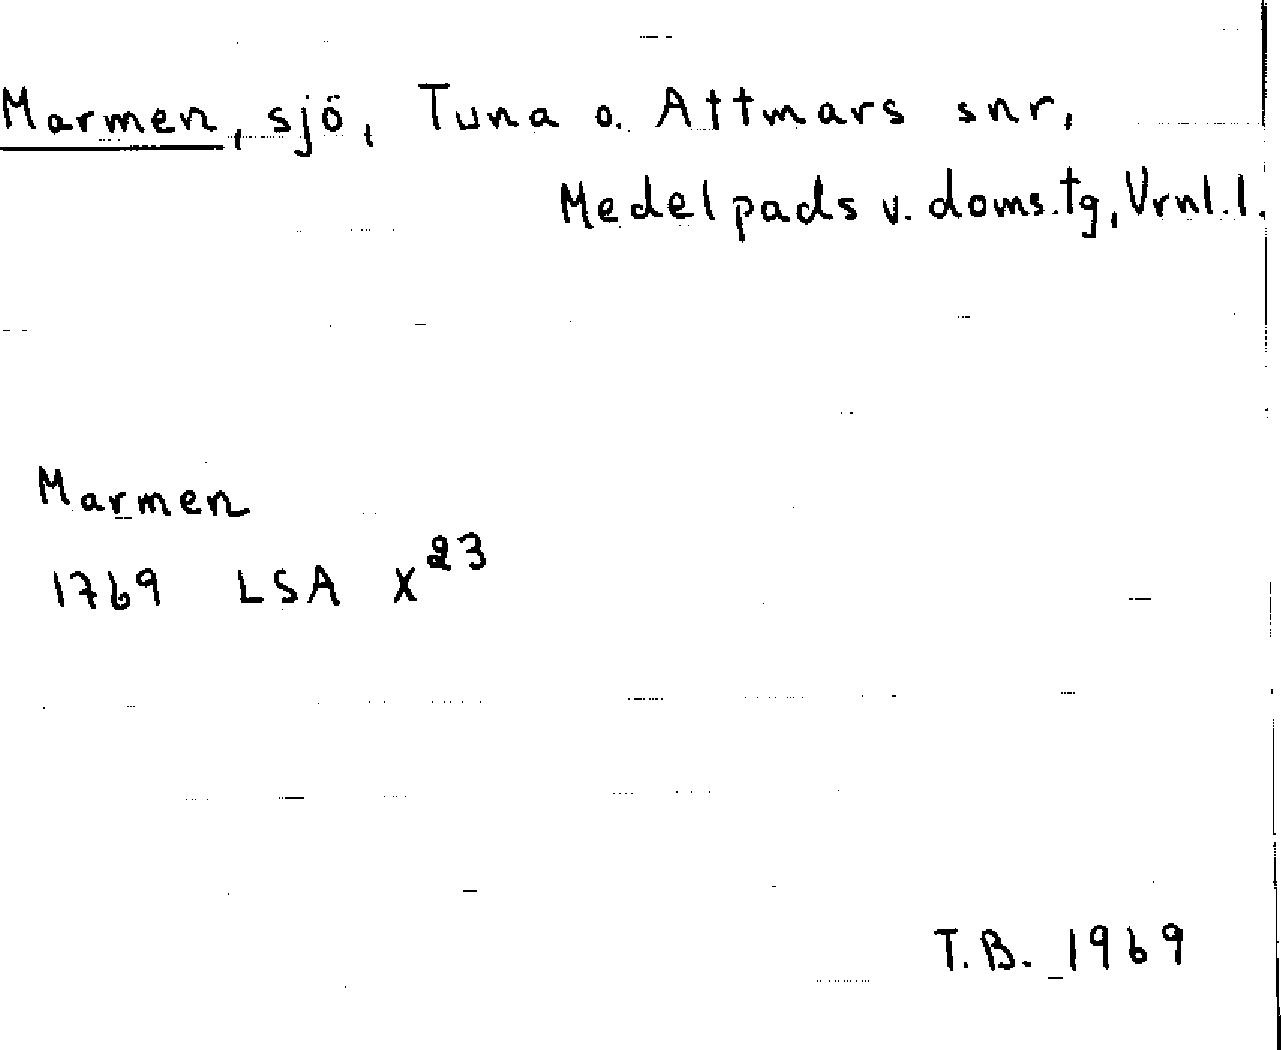 Marmen, sjö, Tuna o. Attmars snr,
Medelpads v. doms.tg, Vrnl.l.
Marmen
1769 LSA X²³
T.B. 1969